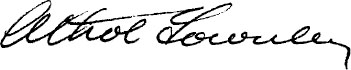 Athol Townley